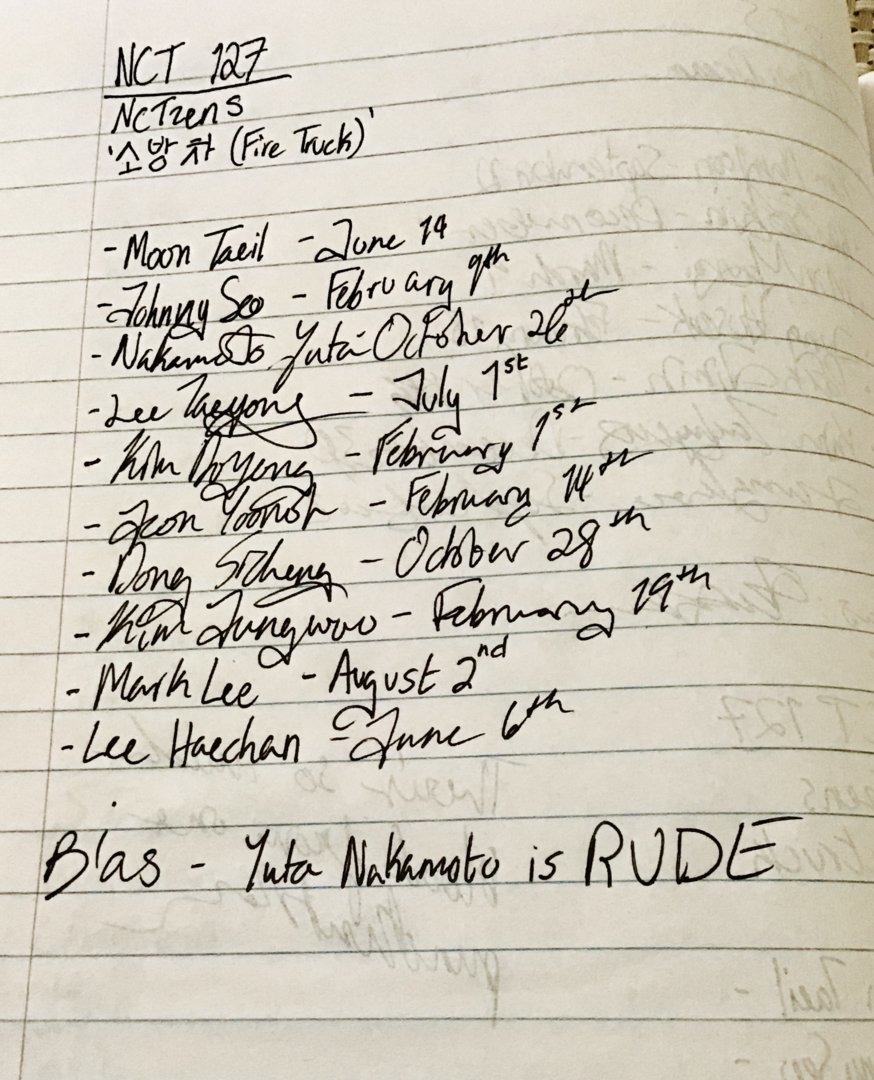 NCT 127
NCTzens
'소방차 (Fire Truck)'
- Moon Taeil - June 14
- Johnny Seo - February 9th
- Nakamoto Yuta October 26th
- Lee Taeyong - July 1st
- Kim Doyong - February 1st
- Jeon Yoonoh - February 14th
- Dong Sicheng - October 28th
- Kim Jungwoo - February 19th
- Mark Lee - August 2nd
- Lee Haechan - June 6th
Bias - Yuta Nakamoto is RUDE